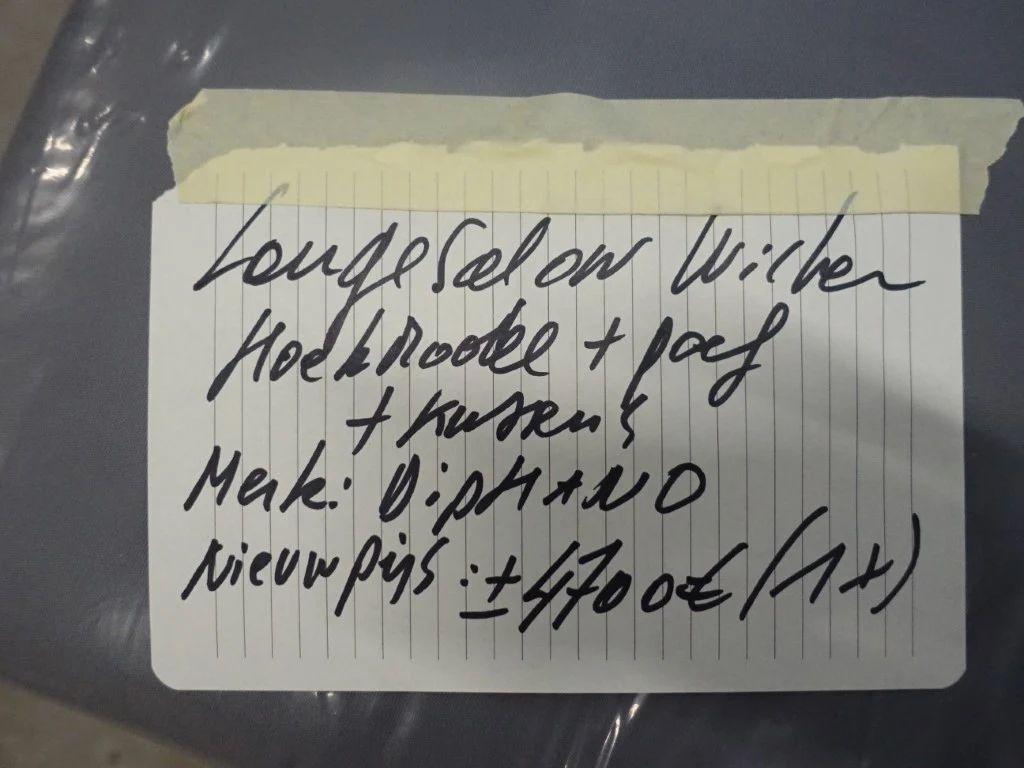 Loungesalon Wicker
Hoekmodel + poef
+ Kussens
Merk: DipHANO
Nieuwprijs: ± 4700€ (1x)